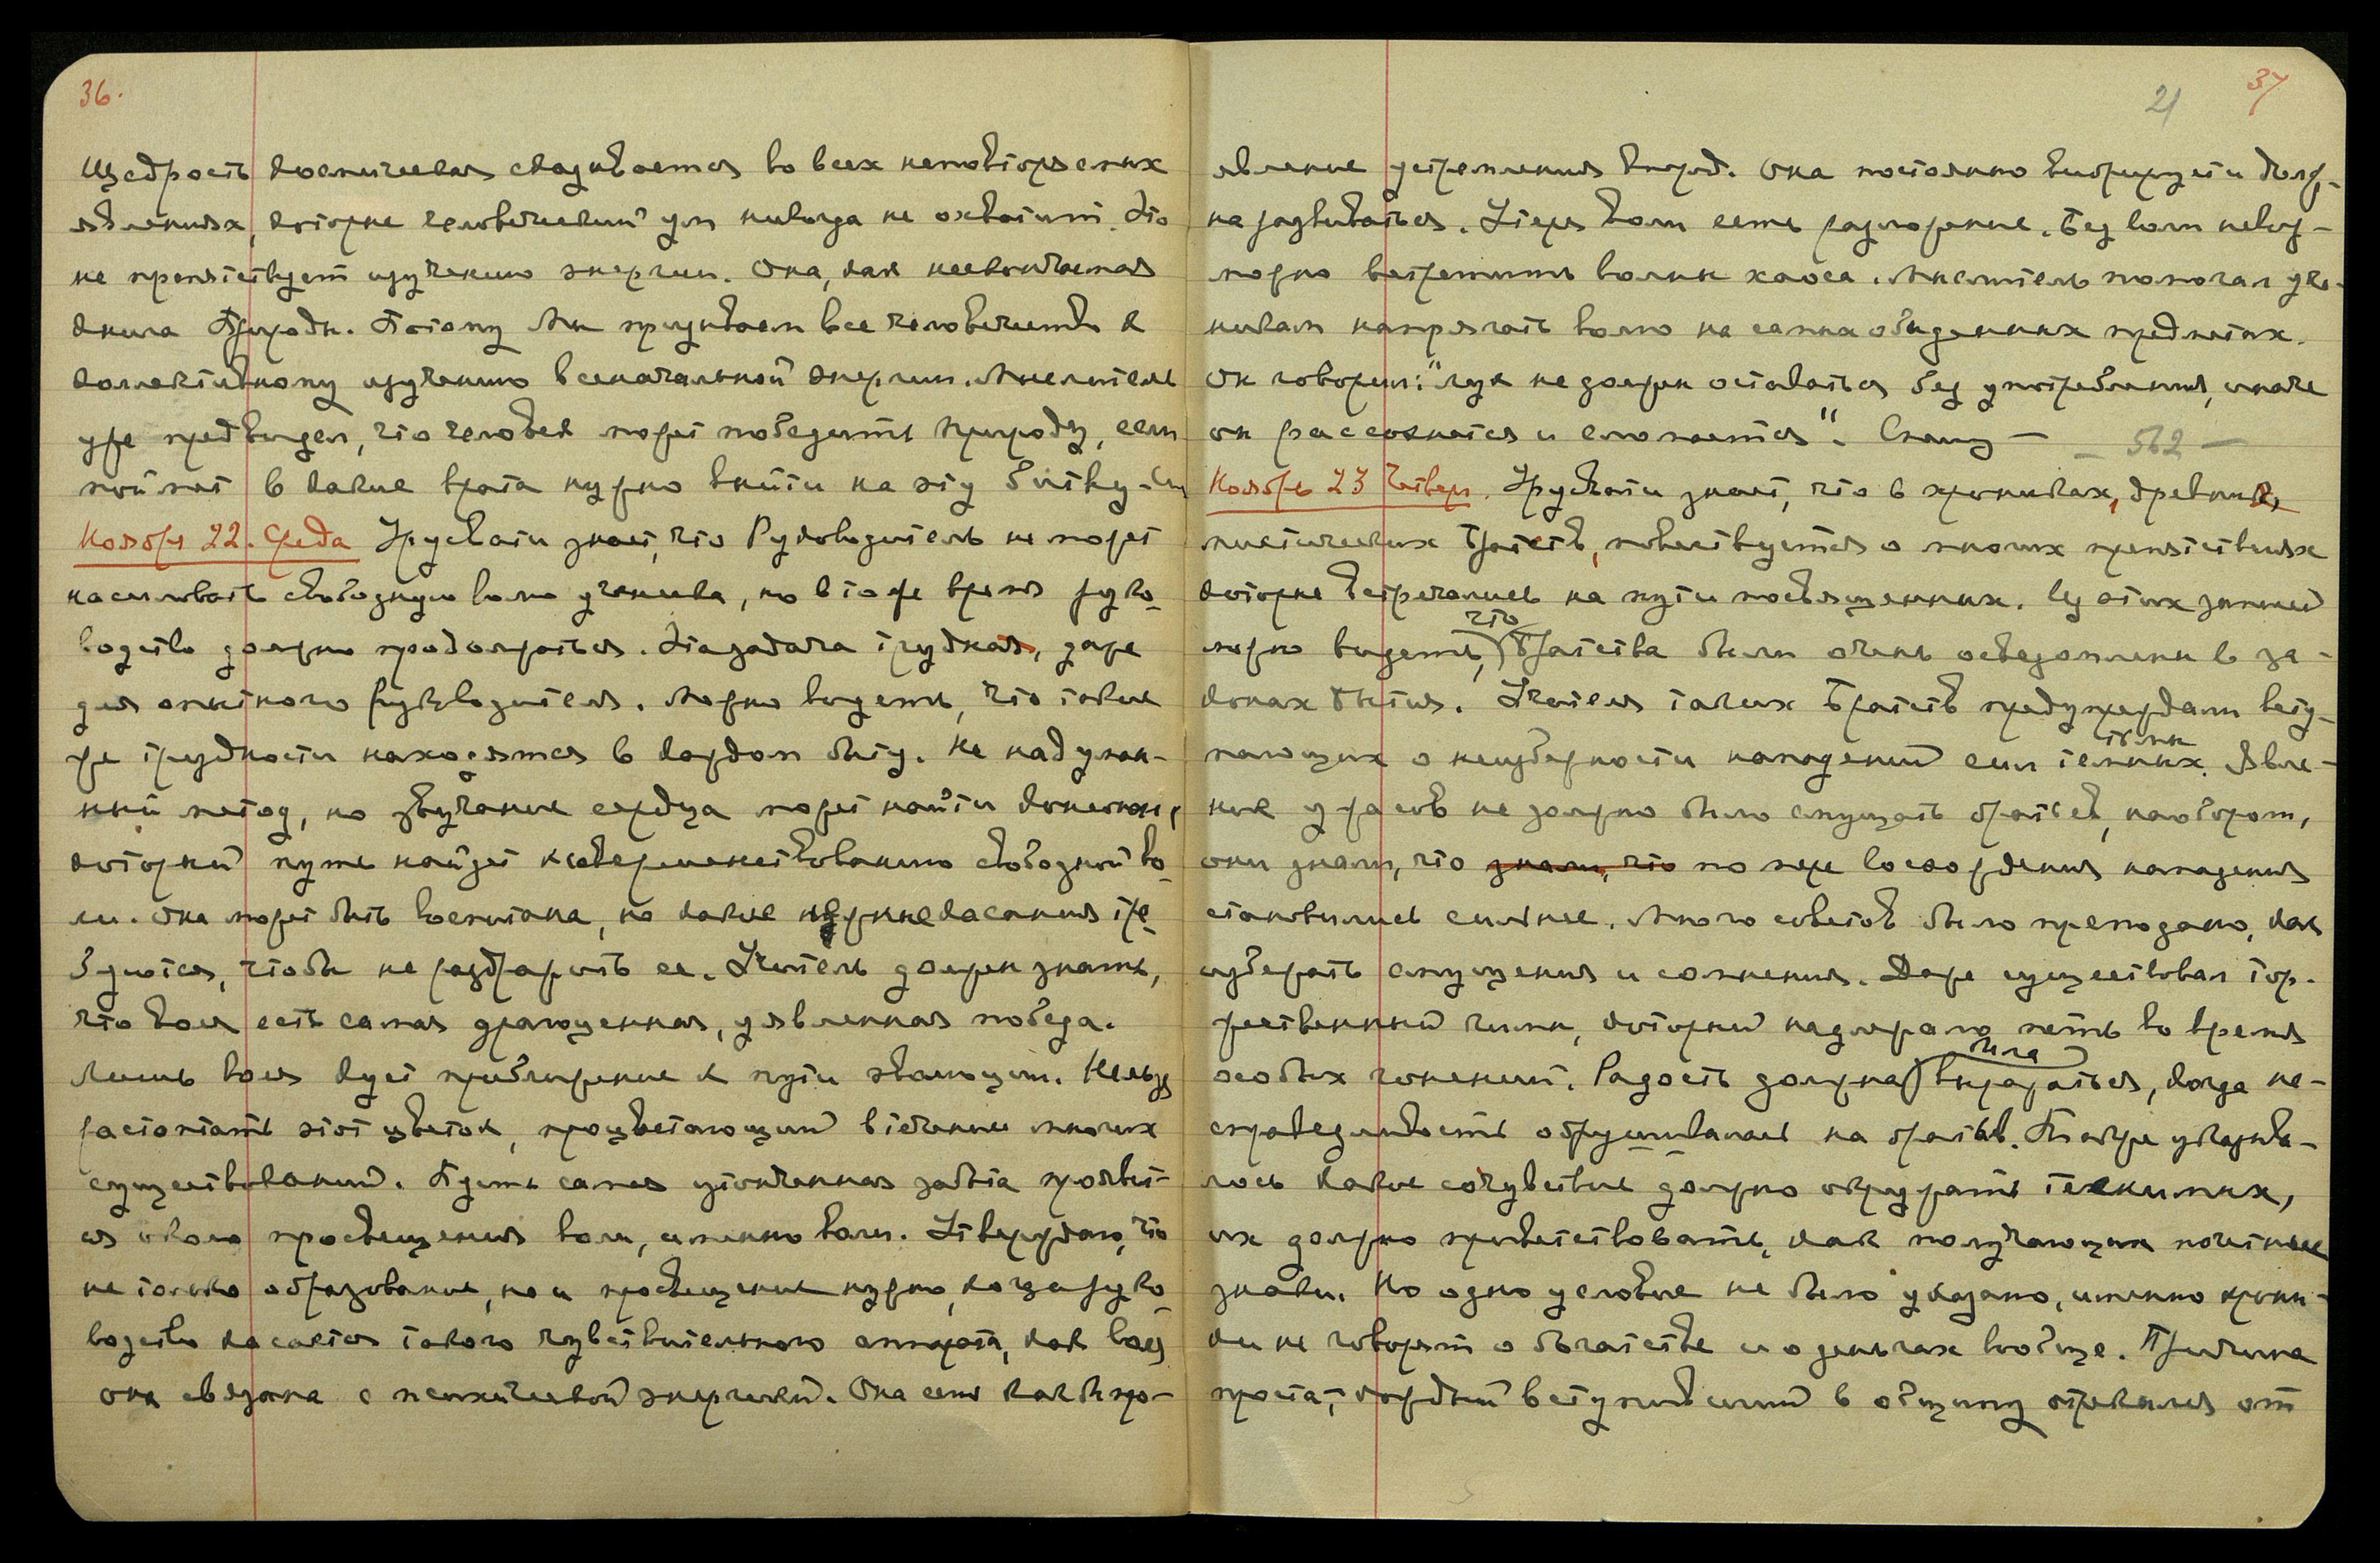 36.
Щедрость космическая сказывается во всех неповторяемых
явлениях, которые человеческий ум никогда не охватит. Это
не препятствует изучению энергии. Она, как нескончаемая
книга Природы. Потому Мы призываем все человечество к
коллективному изучению всеначальной энергии. Мыслитель
уже предвидел, что человек может победить природу, если
поймет в какие врата нужно войти на эту битву.
Ноября 22. Среда Урусвати знает, что Руководитель не может
насиловать свободную волю ученика, но в то же время руко-
водство должно продолжаться. Эта задача трудная, даже
для опытного руководителя. Можно видеть, что такие
же трудности находятся в каждом быту. Не надуман-
ный метод, но звучание сердца может найти
который путь найдет к совершенствованию свободной во-
ли. Она может быть воспитана, но какие нежные касания тре-
буются, чтобы не раздражить ее. Учитель должен знать,
что воля есть самая драгоценная, уявленная победа.
Лишь воля кует приближение к пути эволюции. Нельзя
растоптать этот цветок, процветающий в течении многих
существований. Пусть самая утонченная забота проявит-
ся около просвещения воли, именно воли. Утверждаю, что
не только образование, но и просвещение нужно, когда руко-
водство касается такого чувствительного аппарата, как воля
она связана с психической энергией. Она есть как бы про-
21 37
явление устремления вперед. Она постоянно вибрирует и долж-
на развиваться. Утеря воли есть разложение. Без воли невоз-
можно встретить волны хаоса. Мыслитель помогал уче-
никам напрягать волю на самых обыденных предметах.
Он говорил: "лук не должен оставаться без употребления, иначе
он рассохнется и сломается". Слышу — 562 —
Ноябрь 23 Четверг. Урусвати знает, что в хрониках, древних,
мистических Братств, повествуется о многих препятствиях
которые встречались на пути посвященных. Из этих записей
можно видеть, что Братства были очень осведомлены в за-
конах бытия. Учителя таких Братств предупреждали всту-
пающих о неизбежности нападений сил темных. Явле-
ние ужасов не должно было смущать братьев, наоборот,
они знали, что знали, что по мере восхождения нападения
становились сильнее. Много советов было преподано, как
избежать смущения и сомнения. Даже существовал тор-
жественный гимн, который надлежало петь во время
особых гонений. Радость должна была выражаться, когда не-
справедливость обрушивалась на братьев. Также указыва-
лось какие сочувствие должно окружать гонимых,
их должно приветствовать, как получающих почетные
знаки. Но одно условие не было указано, именно хрони-
ки не говорят о богатстве и о деньгах вообще. Причина
проста, – каждый вступивший в общину отрекался от